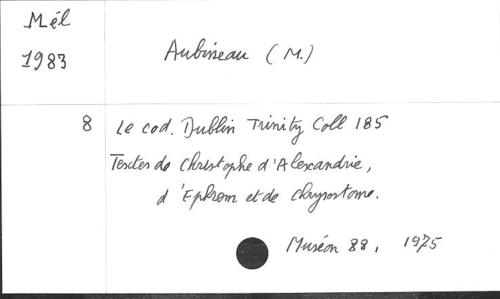 Mél
1983
Aubineau (M.)
8 Le cod. Dublin Trinity Coll 185
Textes de Christophe d'Alexandrie,
d'Ephrem et de Chrysostome.
Muséon 88, 1975